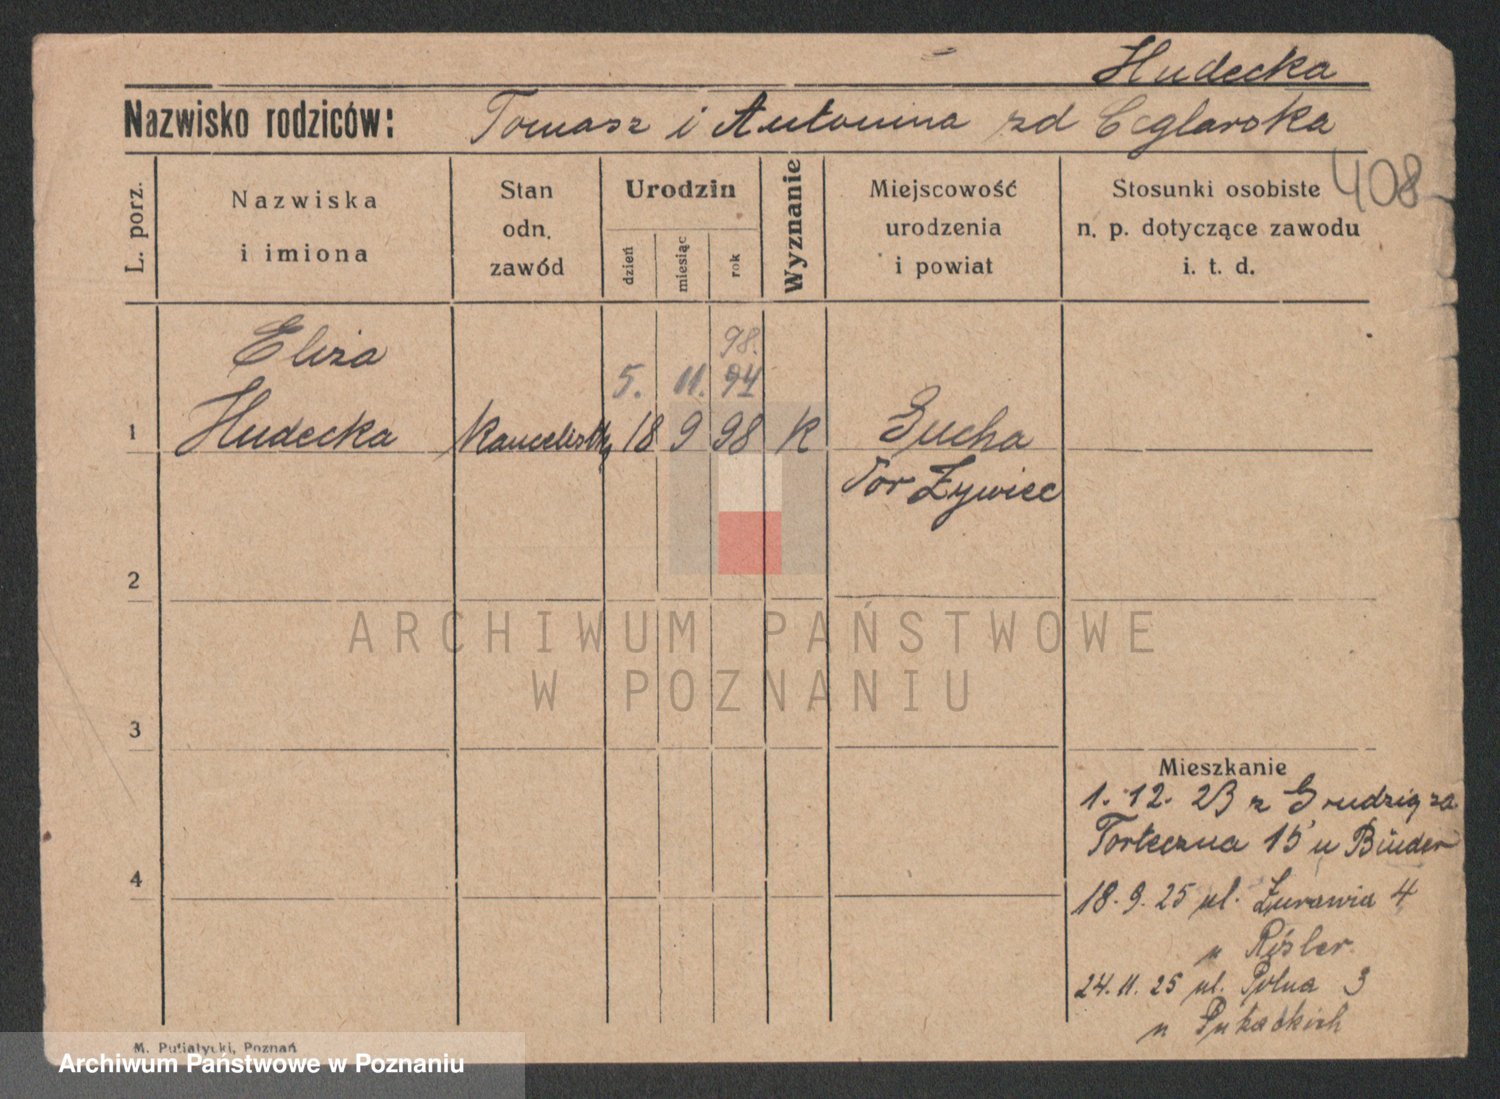 Hudecka
Nazwisko rodziców: Tomasz i Antonina zd Ceglarska
408
L. porz.
Nazwiska
i imiona
Stan
odn.
zawód
Urodzin
dzień
miesiąc
rok
Wyznanie
Miejscowość
urodzenia
i powiat
Stosunki osobiste
n. p. dotyczące zawodu
i. t. d.
98.
Eliza
5. 11. 94
1 Hudecka kancelistka 18 9 98 K Sucha
Żywiec
2
ARCHIWUM PAŃSTWOWE
W POZNANIU
3
Mieszkanie
1. 12. 23 z Grudziądza
Forteczna 15 u Binder
4
18. 9. 25 ul. Żurawia 4
u Rösler
24. 11. 25 ul. Polna 3
u
M. Putiatycki, Poznań
Archiwum Państwowe w Poznaniu